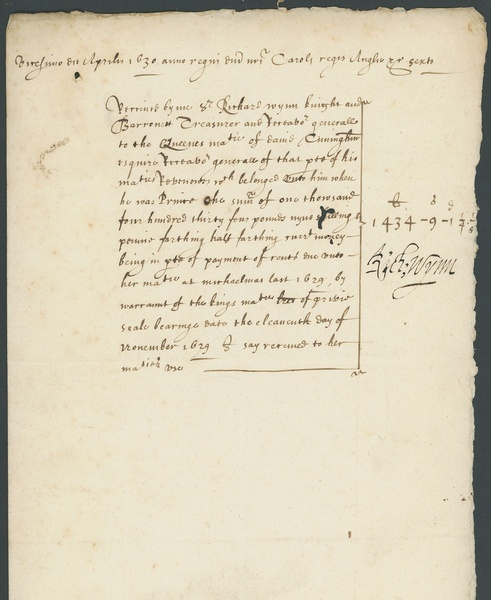 Vicesimo die Aprilis 1630 anno regni dni nri Caroli regis Anglie &c sexto
Received by me Sr Richard Wynn knight and
Barronett Treasurer and Receavor generall
to the Queenes matie of David Cuningham
esquire Receavor generall of that pte of his
maties Revenewes wch belonged unto him when
he was Prince the sum of one thousand
four hundred thirty four pounds nyne shillings
penny farthing half farthing currt money
being in pte of payment of rents due unto
her matie at michaelmas last 1629, by
warrant of the kings matie of privie
seale bearinge date the eleaventh day of
November 1629 I say received to her
maties use
li s d
1434-9-1
Rich: Wynn